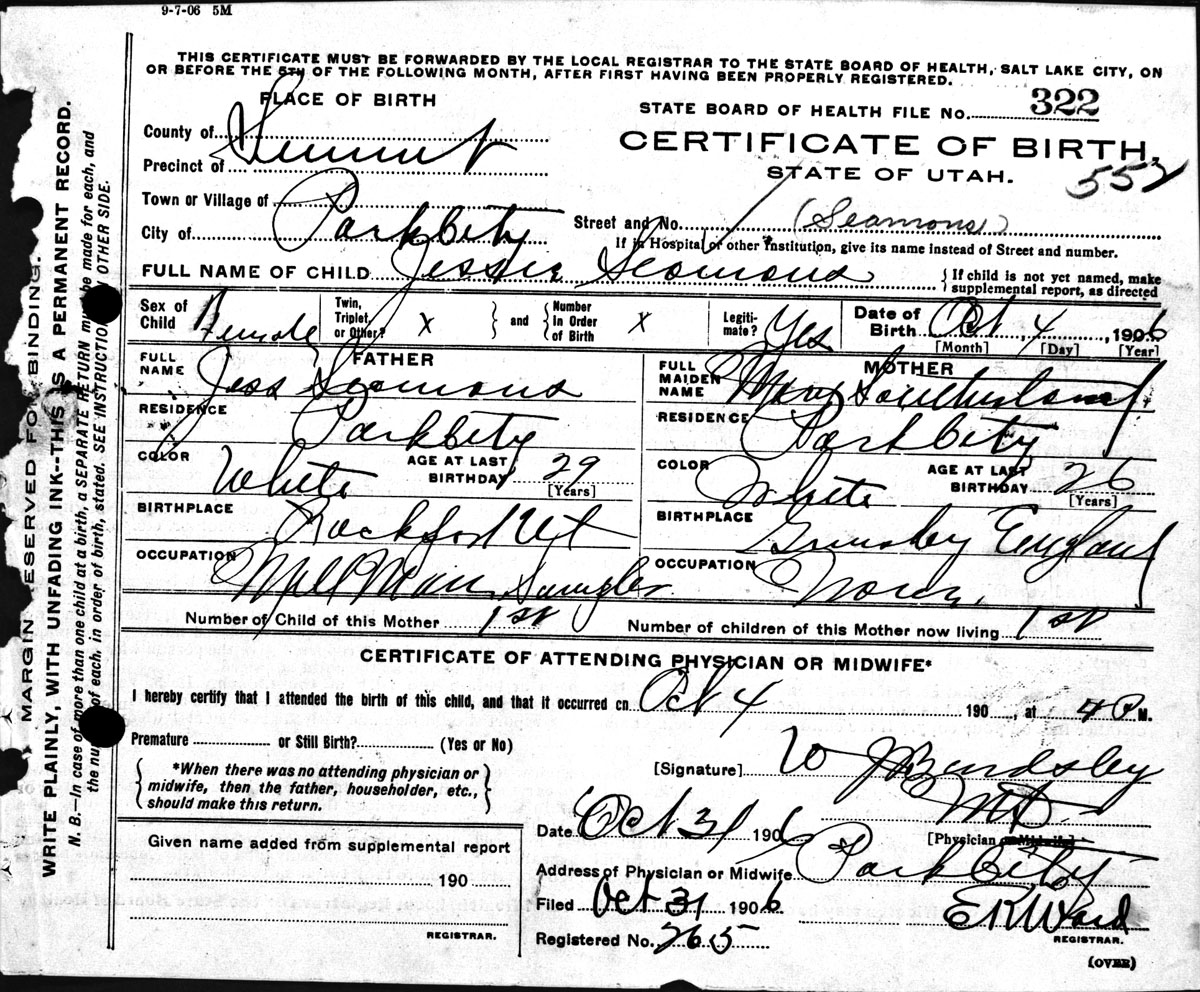 9-7-06 5M
THIS CERTIFICATE MUST BE FORWARDED BY THE LOCAL REGISTRAR TO THE STATE BOARD OF HEALTH, SALT LAKE CITY, ON
OR BEFORE THE 5TH OF THE FOLLOWING MONTH, AFTER FIRST HAVING BEEN PROPERLY REGISTERED.
PLACE OF BIRTH
STATE BOARD OF HEALTH FILE No. 322
County of Summit
CERTIFICATE OF BIRTH,
Precinct of
STATE OF UTAH.
552
Town or Village of
Street and No. (Seamons)
City of Park City
If in Hospital or other Institution, give its name instead of Street and number.
FULL NAME OF CHILD Jessie Seamons
{If child is not yet named, make
supplemental report, as directed
Sex of Child Female
Twin, Triplet, or Other? X } and { Number In Order of Birth X
Legiti-mate? Yes
Date of Birth Oct, 4, 1906
[Month] [Day] [Year]
FATHER
MOTHER
FULL NAME Jess Seamons
FULL MAIDEN NAME May Southerland
RESIDENCE Park City
RESIDENCE Park City
COLOR White AGE AT LAST BIRTHDAY 29 [Years]
COLOR White AGE AT LAST BIRTHDAY 26 [Years]
BIRTHPLACE Rockford Ut
BIRTHPLACE Grimsby England
OCCUPATION Mill Man Sampler
OCCUPATION None
Number of Child of this Mother 1st
Number of children of this Mother now living 1st
CERTIFICATE OF ATTENDING PHYSICIAN OR MIDWIFE*
I hereby certify that I attended the birth of this child, and that it occurred on Oct 4 190, at 4 P M.
Premature or Still Birth? (Yes or No)
[Signature] W J Bardsley
MD
{*When there was no attending physician or
midwife, then the father, householder, etc.,
should make this return.}
Date Oct 31 1906
[Physician or Midwife]
Given name added from supplemental report
Address of Physician or Midwife Park City
190
Filed Oct 31 1906
E R Ward
REGISTRAR.
REGISTRAR.
Registered No. 265
(OVER)
MARGIN RESERVED FOR BINDING.
WRITE PLAINLY, WITH UNFADING INK--THIS IS A PERMANENT RECORD.
N. B.—In case of more than one child at a birth, a SEPARATE RETURN must be made for each, and
the number of each, in order of birth, stated. SEE INSTRUCTIONS ON OTHER SIDE.